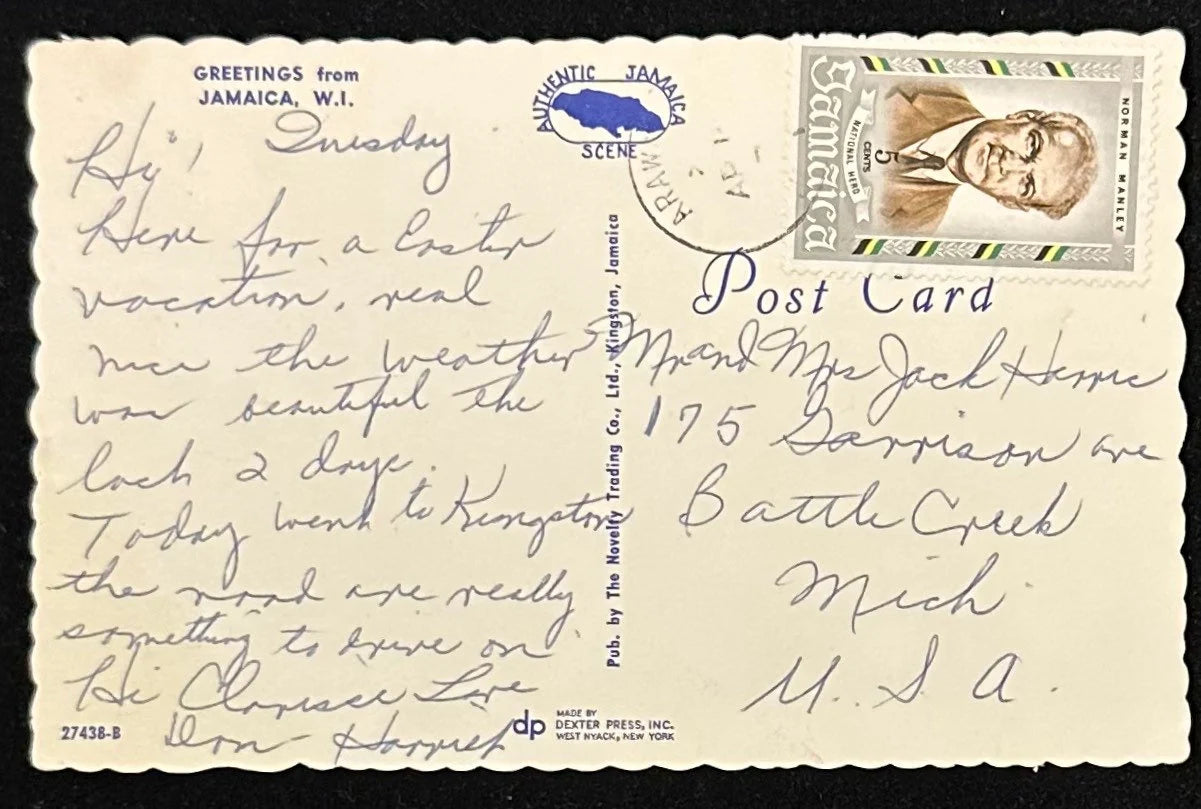 GREETINGS from
JAMAICA, W.I.
AUTHENTIC JAMAICA
SCENE
Tuesday
Hi!
Here for a Easter
vacation, real
nice the weather
was beautiful the
last 2 days.
Today went to Kingston
the road are really
something to drive on
Hi Clarisse Love
Don
27438-B
dp
MADE BY
DEXTER PRESS, INC.
WEST NYACK, NEW YORK
Pub. by The Novelty Trading Co., Ltd., Kingston, Jamaica
ARAW
2
AP
NORMAN MANLEY
NATIONAL HERO
5
CENTS
Jamaica
Post Card
Mr and Mrs Jack Harris
175 Garrison ave
Battle Creek
Mich
U.S.A.